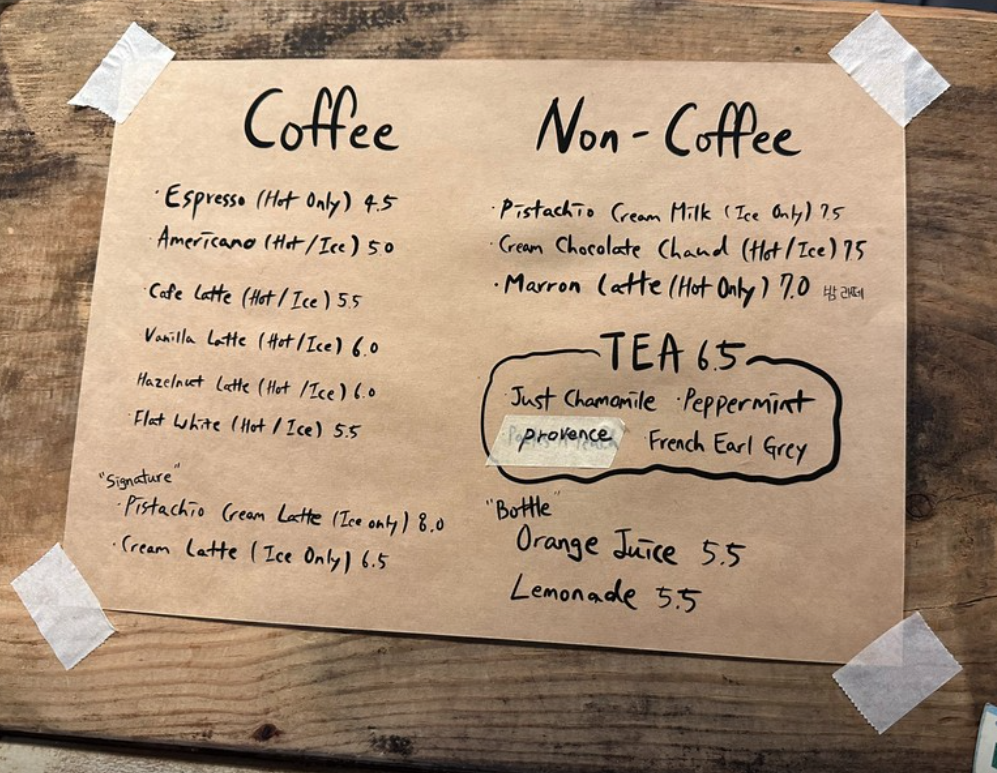 Coffee
· Espresso (Hot Only) 4.5
· Americano (Hot/Ice) 5.0
· Cafe Latte (Hot/Ice) 5.5
Vanilla Latte (Hot/Ice) 6.0
Hazelnut Latte (Hot/Ice) 6.0
· Flat White (Hot/Ice) 5.5
"Signature"
· Pistachio Cream Latte (Ice only) 8.0
· Cream Latte (Ice Only) 6.5
Non-Coffee
· Pistachio Cream Milk (Ice Only) 7.5
· Cream Chocolate Chaud (Hot/Ice) 7.5
· Marron Latte (Hot Only) 7.0 밤 라떼
TEA 6.5
· Just Chamomile · Peppermint
provence · French Earl Grey
"Bottle"
Orange Juice 5.5
Lemonade 5.5